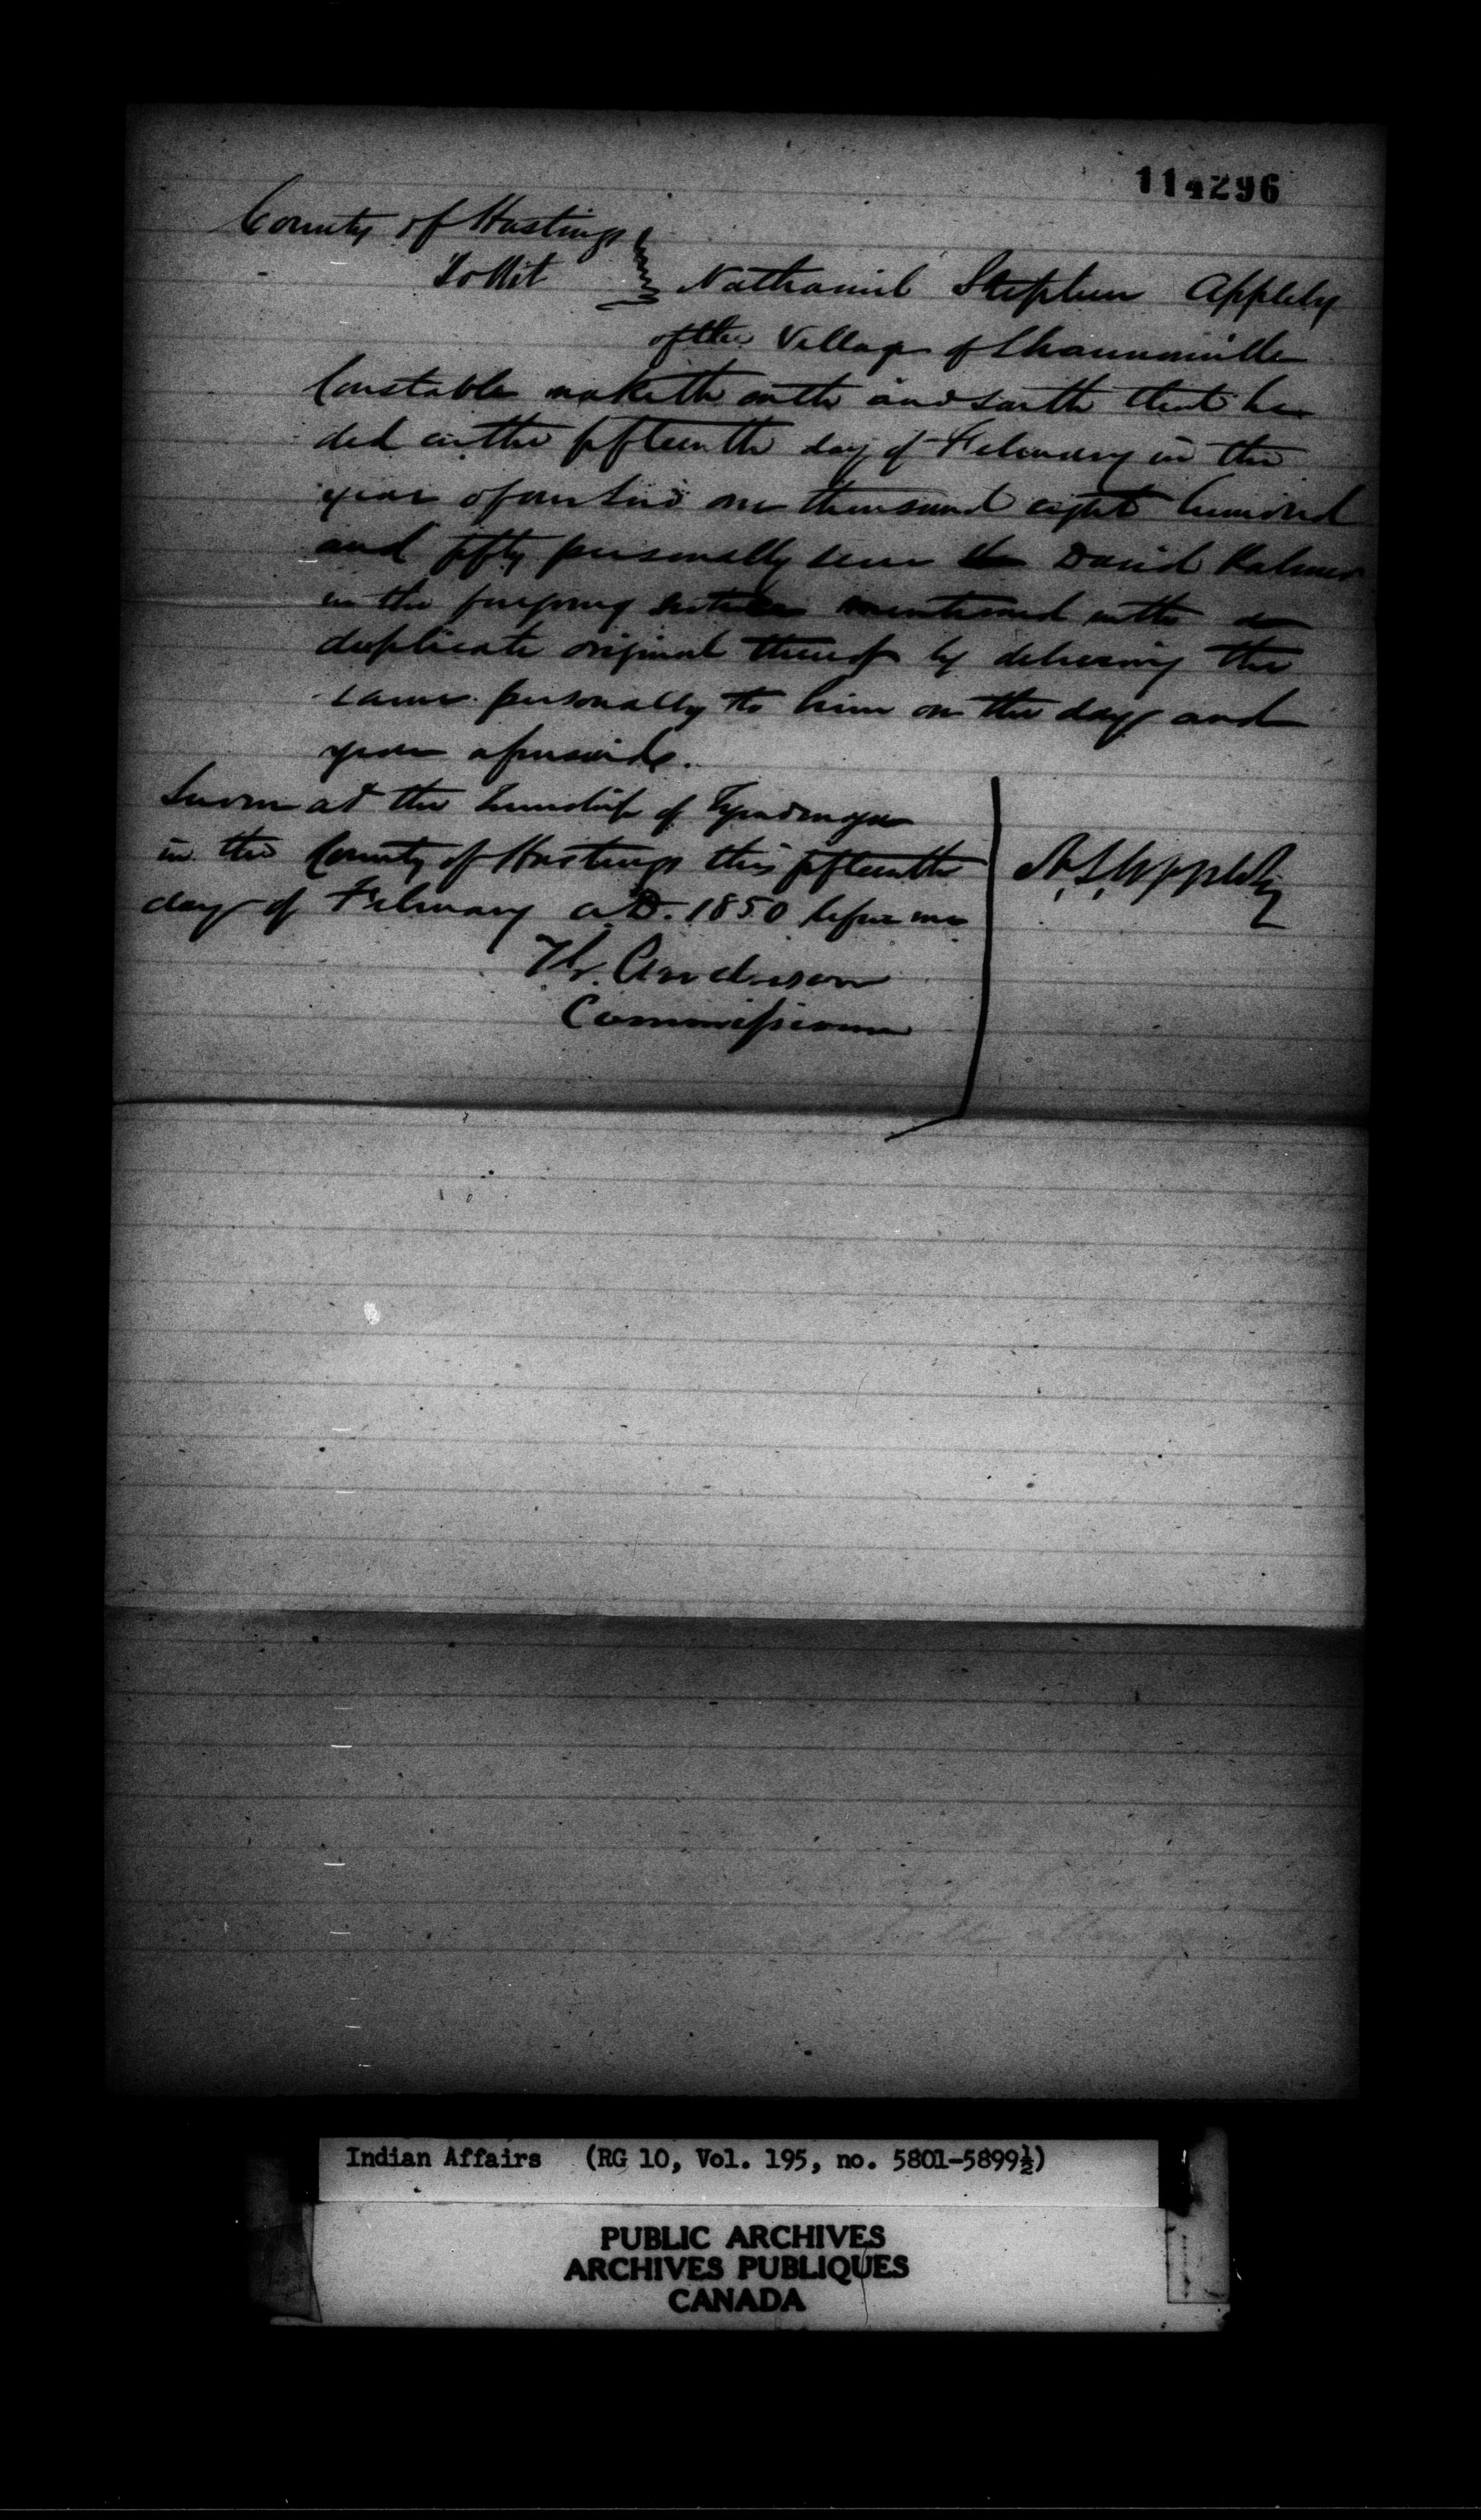 114296
County of Hastings
To Wit } Nathaniel Stephen Appleby
of the Village of Shannonville
Constable maketh oath and saith that he
did on the fifteenth day of February in the
year of our Lord one thousand eight hundred
and fifty personally serve the David
in the foregoing notice mentioned with a
duplicate original thereof by delivering the
same personally to him on the day and
year aforesaid.
Sworn at the Township of Tyendinaga
in the County of Hastings this fifteenth
day of February A.D. 1850 before me
N. S. Appleby
Th. Anderson
Commissioner
Indian Affairs (RG 10, Vol. 195, no. 5801-5899½)
PUBLIC ARCHIVES
ARCHIVES PUBLIQUES
CANADA